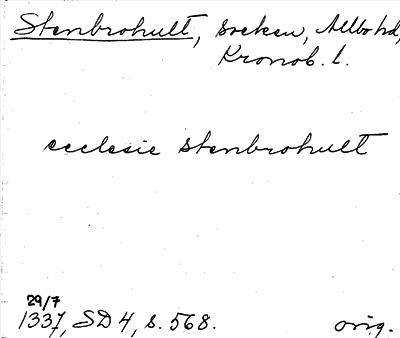 Stenbrohult, socken, Allbo hd,
Kronob. l.
ecclesie stenbrohult
29/7
1337, SD 4, s. 568.
orig.